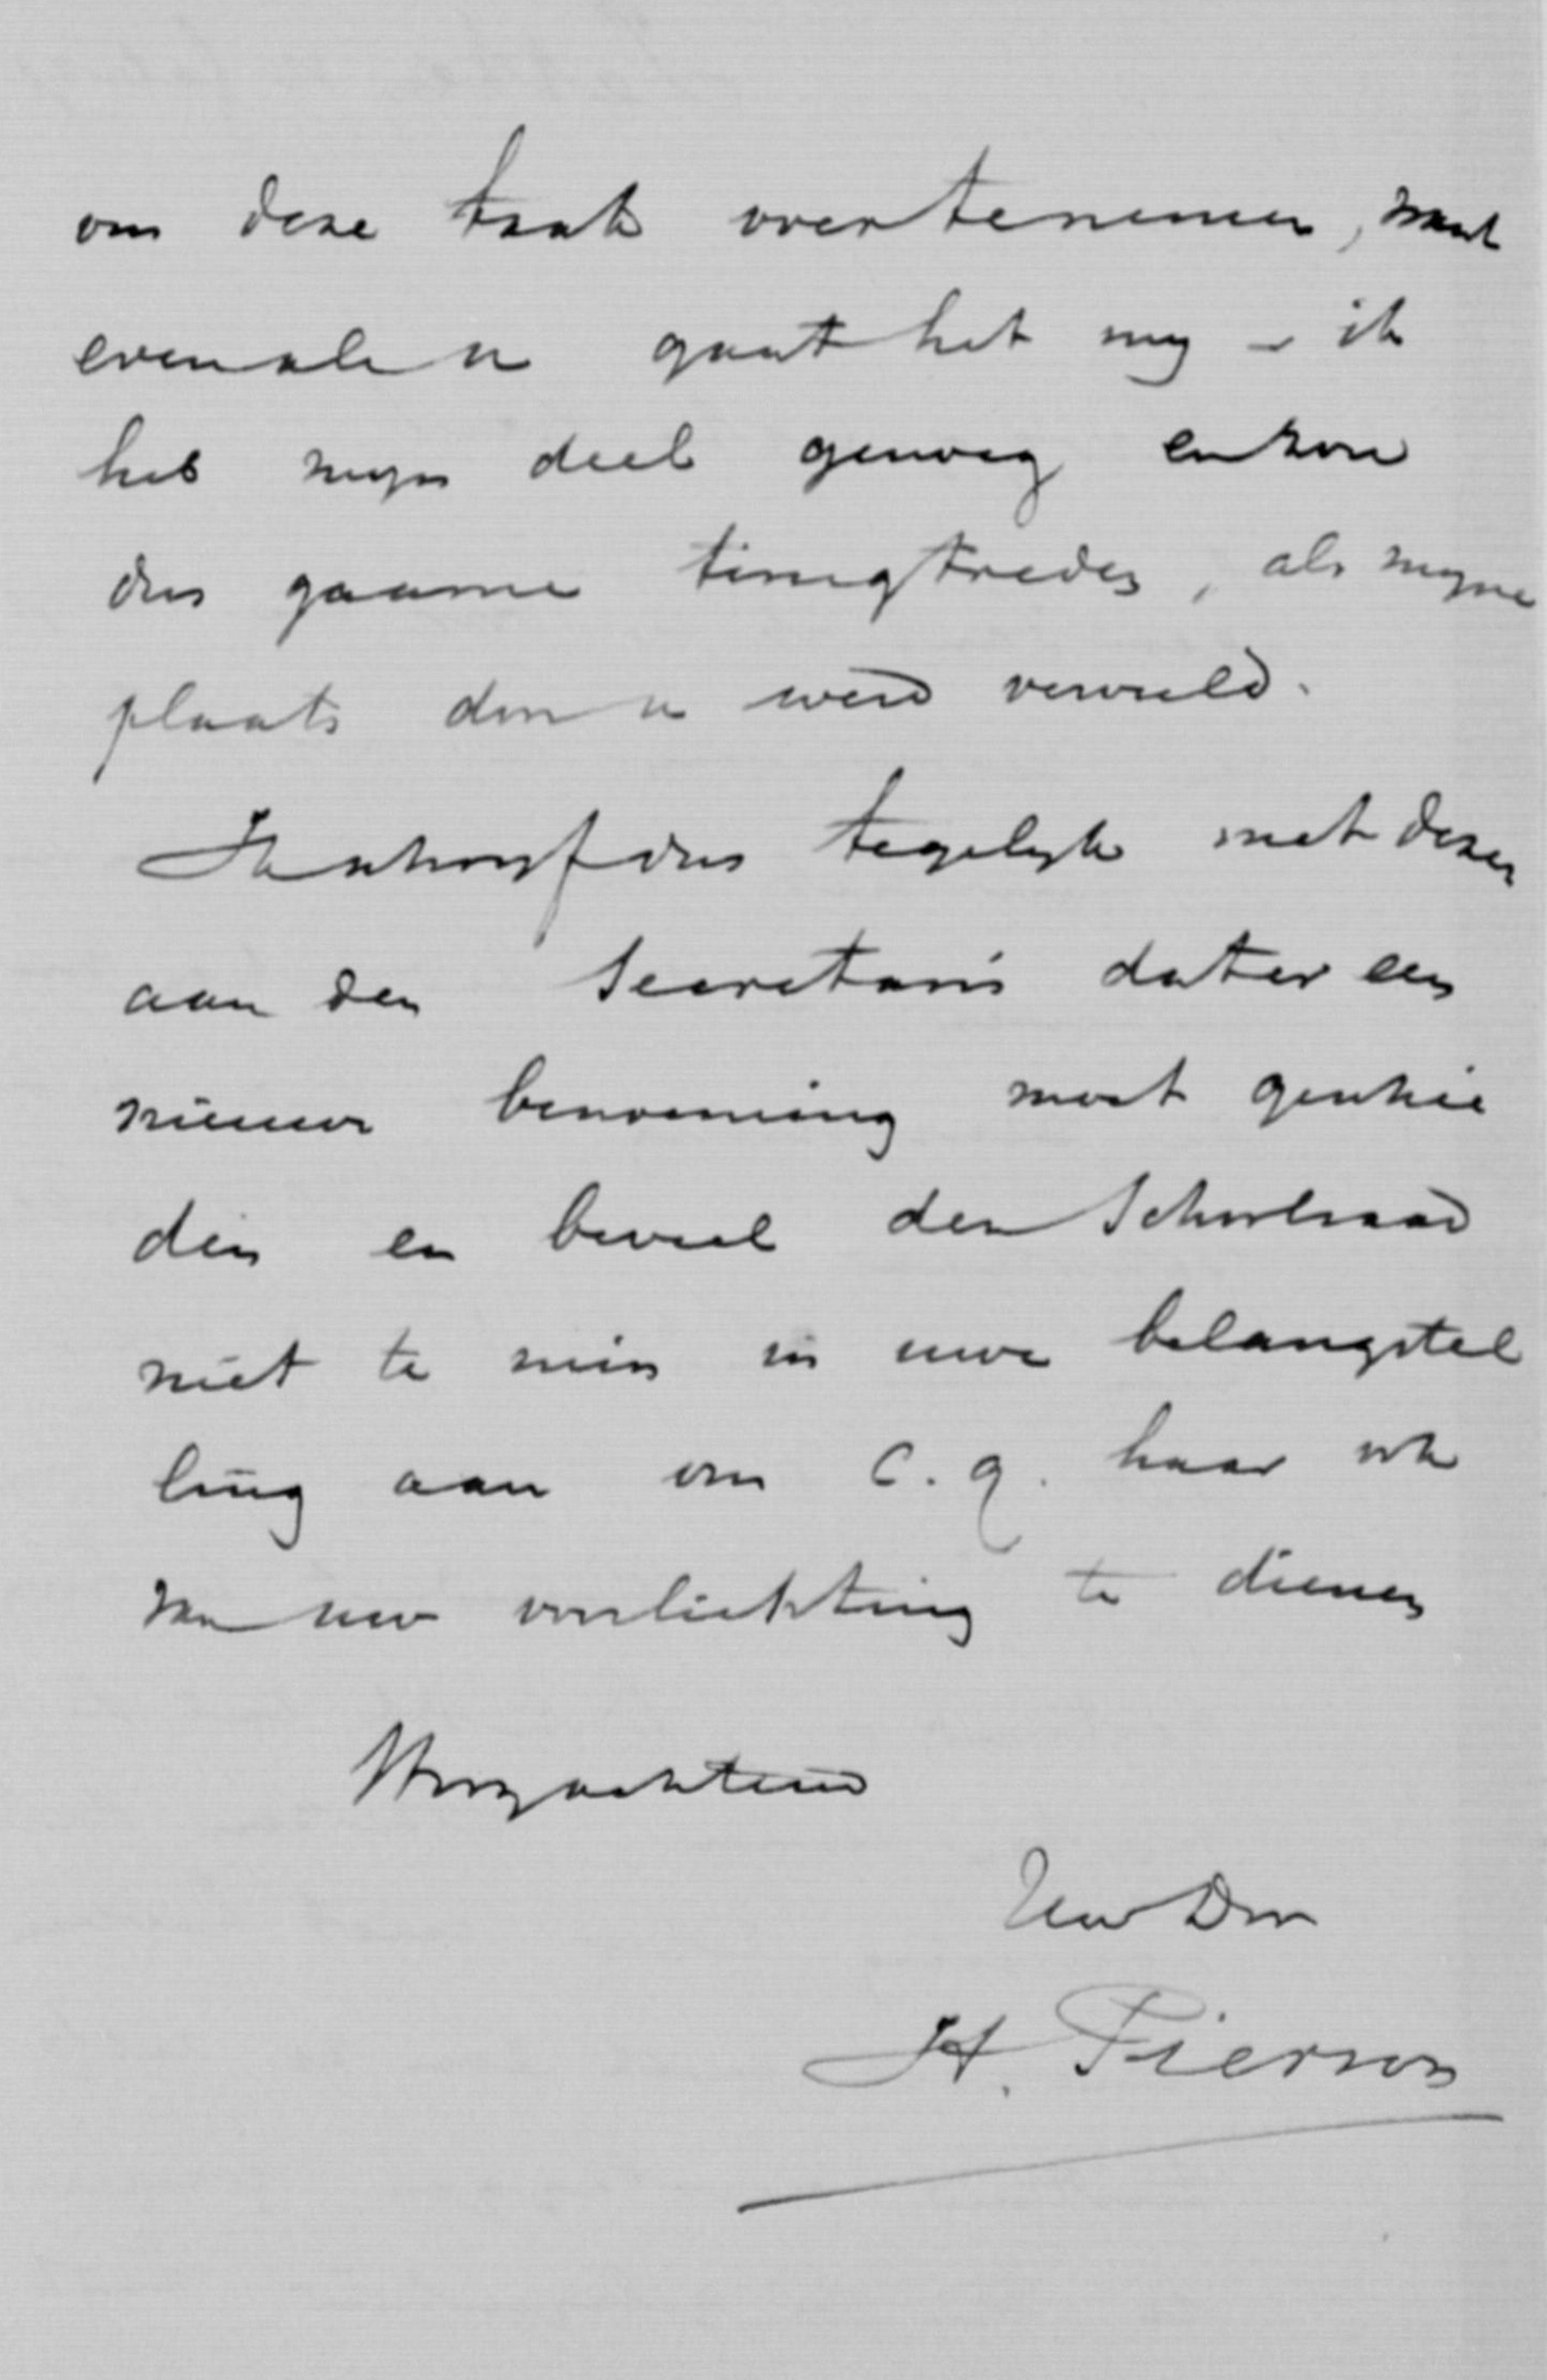 om deze taak overtenemen, want
evenals u gaat het my – ik
heb myn deel genoeg en zou
dus gaarne terugtreden, als myne
plaats door u werd vervuld.
Ik schryf dus tegelyk met dezen
aan den Secretaris dat er een
nieuwe benoeming moet geschie
den en beveel den Schoolraad
niet te min in uwe belangstel
ling aan om c.q. haar ook
van uw voorlichting te dienen
Hoogachtend
Uw Dr
H. Pierson